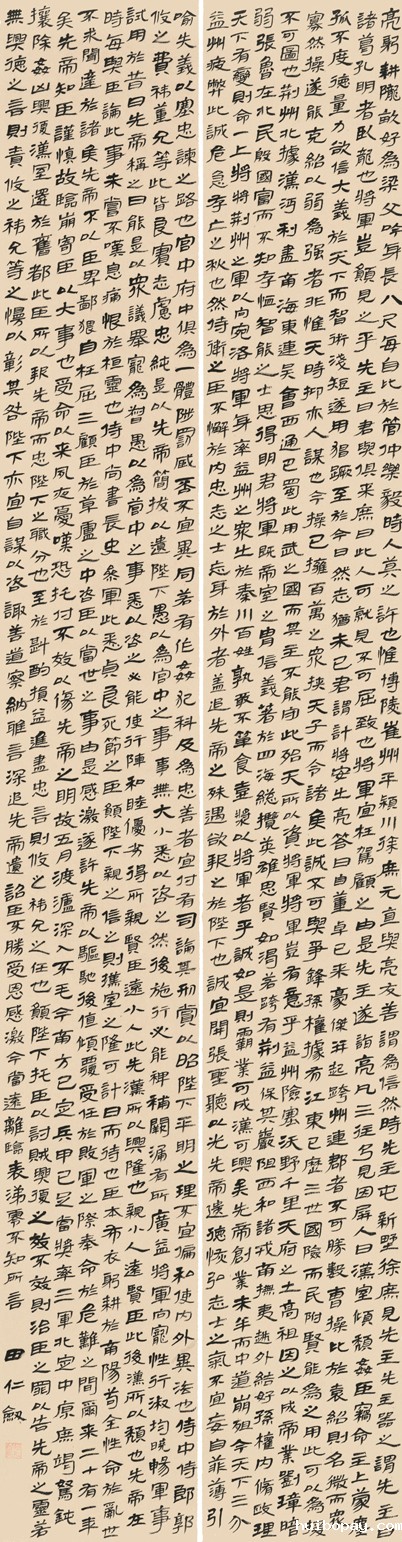 亮躬耕隴畝好為梁父吟身長八尺每自比於管仲樂毅時人莫之許也惟博陵崔州平潁川徐庶元直與亮友善謂為信然時先主屯新野徐庶見先主先主器之謂先主曰
諸葛孔明者臥龍也將軍豈願見之乎先主曰君與俱來庶曰此人可就見不可屈致也將軍宜枉駕顧之由是先主遂詣亮凡三往乃見因屏人曰漢室傾頹姦臣竊命主上蒙塵
孤不度德量力欲信大義於天下而智術淺短遂用猖蹶至於今日然志猶未已君謂計將安出亮答曰自董卓已來豪傑并起跨州連郡者不可勝數曹操比於袁紹則名微而眾
寡然操遂能克紹以弱為強者非惟天時抑亦人謀也今操已擁百萬之眾挾天子而令諸侯此誠不可與爭鋒孫權據有江東已歷三世國險而民附賢能為之用此可以為援
不可圖也荊州北據漢沔利盡南海東連吳會西通巴蜀此用武之國而其主不能守此殆天所以資將軍將軍豈有意乎益州險塞沃野千里天府之土高祖因之以成帝業劉璋暗
弱張魯在北民殷國富而不知存恤智能之士思得明君將軍既帝室之胄信義著於四海總攬英雄思賢如渴若跨有荊益保其巖阻西和諸戎南撫夷越外結好孫權內修政理
天下有變則命一上將將荊州之軍以向宛洛將軍身率益州之眾出於秦川百姓孰敢不簞食壺漿以迎將軍者乎誠如是則霸業可成漢可興矣先帝創業未半而中道崩殂今天下三分
益州疲弊此誠危急存亡之秋也然侍衛之臣不懈於內忠志之士忘身於外者蓋追先帝之殊遇欲報之於陛下也誠宜開張聖聽以光先帝遺德恢弘志士之氣不宜妄自菲薄引
喻失義以塞忠諫之路也宮中府中俱為一體陟罰臧否不宜異同若有作姦犯科及為忠善者宜付有司論其刑賞以昭陛下平明之理不宜偏私使內外異法也侍中侍郎郭
攸之費禕董允等此皆良實志慮忠純是以先帝簡拔以遺陛下愚以為宮中之事事無大小悉以咨之然後施行必能裨補闕漏有所廣益將軍向寵性行淑均曉暢軍事
試用於昔日先帝稱之曰能是以眾議舉寵為督愚以為營中之事悉以咨之必能使行陣和睦優劣得所親賢臣遠小人此先漢所以興隆也親小人遠賢臣此後漢所以傾頹也先帝在
時每與臣論此事未嘗不嘆息痛恨於桓靈也侍中尚書長史參軍此悉貞良死節之臣願陛下親之信之則漢室之隆可計日而待也臣本布衣躬耕於南陽苟全性命於亂世
不求聞達於諸侯先帝不以臣卑鄙猥自枉屈三顧臣於草廬之中咨臣以當世之事由是感激遂許先帝以驅馳後值傾覆受任於敗軍之際奉命於危難之間爾來二十有一年
矣先帝知臣謹慎故臨崩寄臣以大事也受命以來夙夜憂嘆恐托付不效以傷先帝之明故五月渡瀘深入不毛今南方已定兵甲已足當獎率三軍北定中原庶竭駑鈍
攘除姦凶興復漢室還於舊都此臣所以報先帝而忠陛下之職分也至於斟酌損益進盡忠言則攸之禕允之任也願陛下托臣以討賊興復之效不效則治臣之罪以告先帝之靈若
無興德之言則責攸之禕允等之慢以彰其咎陛下亦宜自謀以咨諏善道察納雅言深追先帝遺詔臣不勝受恩感激今當遠離臨表涕零不知所言
田仁劍
huibopay.com